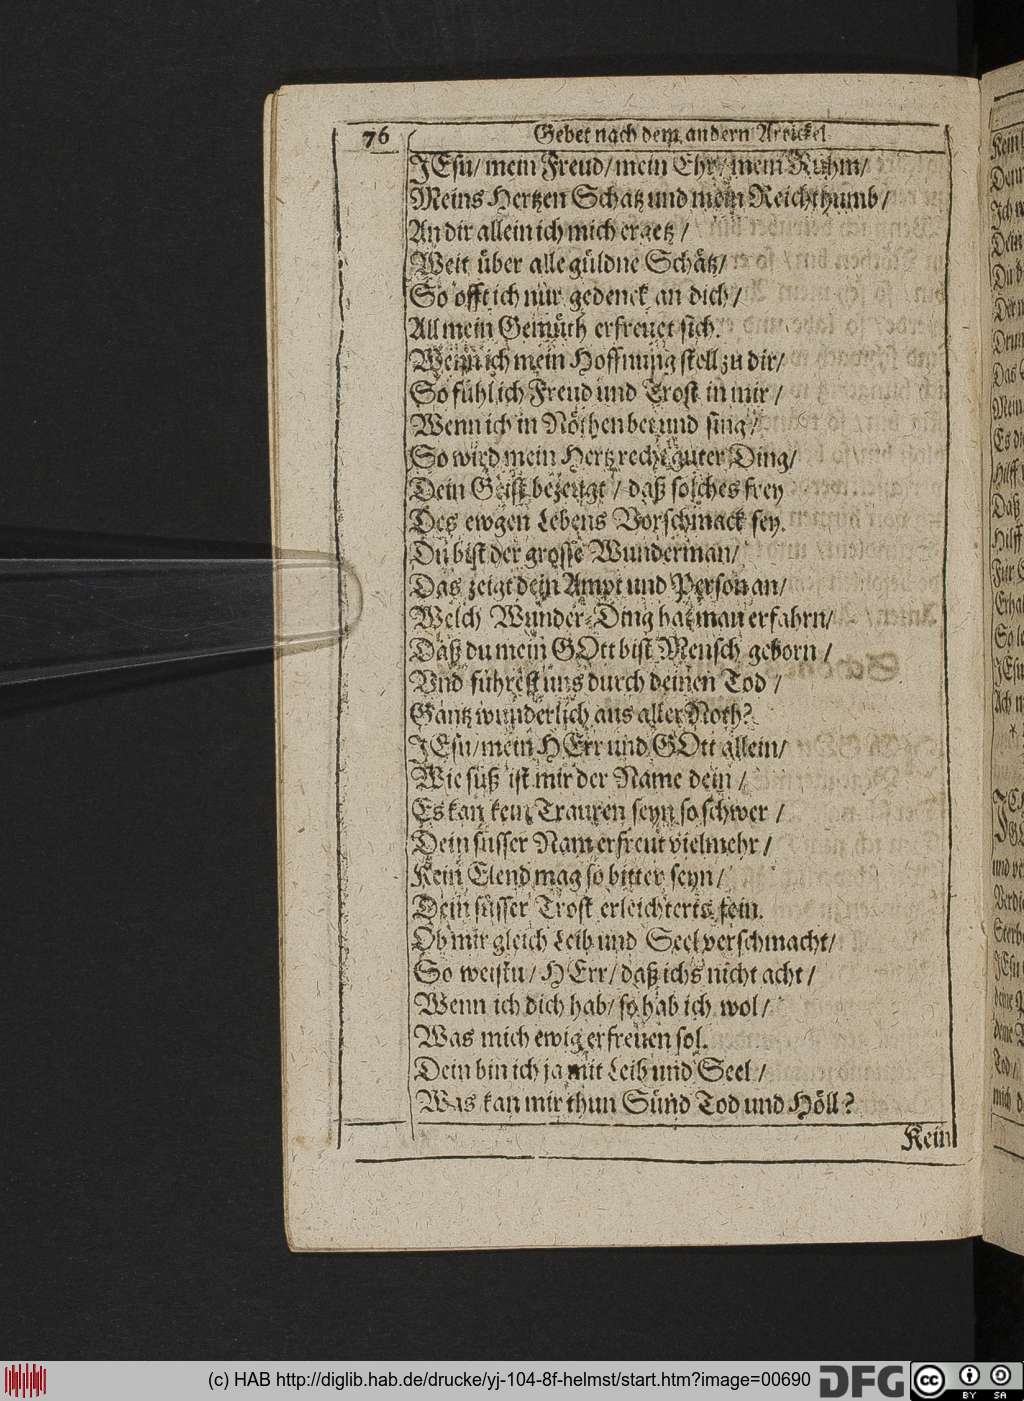 76 Gebet nach dem andern Artickel
JEsu/ mein Freud/ mein Ehr/ mein Ruhm/
Meins Hertzen Schatz und mein Reichthumb/
An dir allein ich mich ergetz/
Weit über alle güldne Schätz/
So offt ich nur gedenck an dich/
All mein Gemüth erfreuet sich.
Wenn ich mein Hoffnung stell zu dir/
So fühl ich Freud und Trost in mir/
Wenn ich in Nöthen bet und sing/
So wird mein Hertz recht guter Ding/
Dein Geist bezeugt/ daß solches frey
Des ewgen Lebens Vorschmack sey.
Du bist der grosse Wunderman/
Das zeigt dein Ampt und Person an/
Welch Wunder-Ding hat man erfahrn/
Daß du mein GOtt bist Mensch geborn/
Vnd führest uns durch deinen Tod/
Gantz wunderlich aus aller Noth?
JEsu/ mein HErr und GOtt allein/
Wie süß ist mir der Name dein/
Es kan kein Trauren seyn so schwer/
Dein süsser Nam erfreut vielmehr/
Kein Elend mag so bitter seyn/
Dein süsser Trost erleichterts fein.
Ob mir gleich Leib und Seel verschmacht/
So weistu/ HErr/ daß ichs nicht acht/
Wenn ich dich hab/ so hab ich wol/
Was mich ewig erfreuen sol.
Dein bin ich ja mit Leib und Seel/
Was kan mir thun Sünd Tod und Höll?
Kein
(c) HAB http://diglib.hab.de/drucke/yj-104-8f-helmst/start.htm?image=00690 DFG cc BY SA